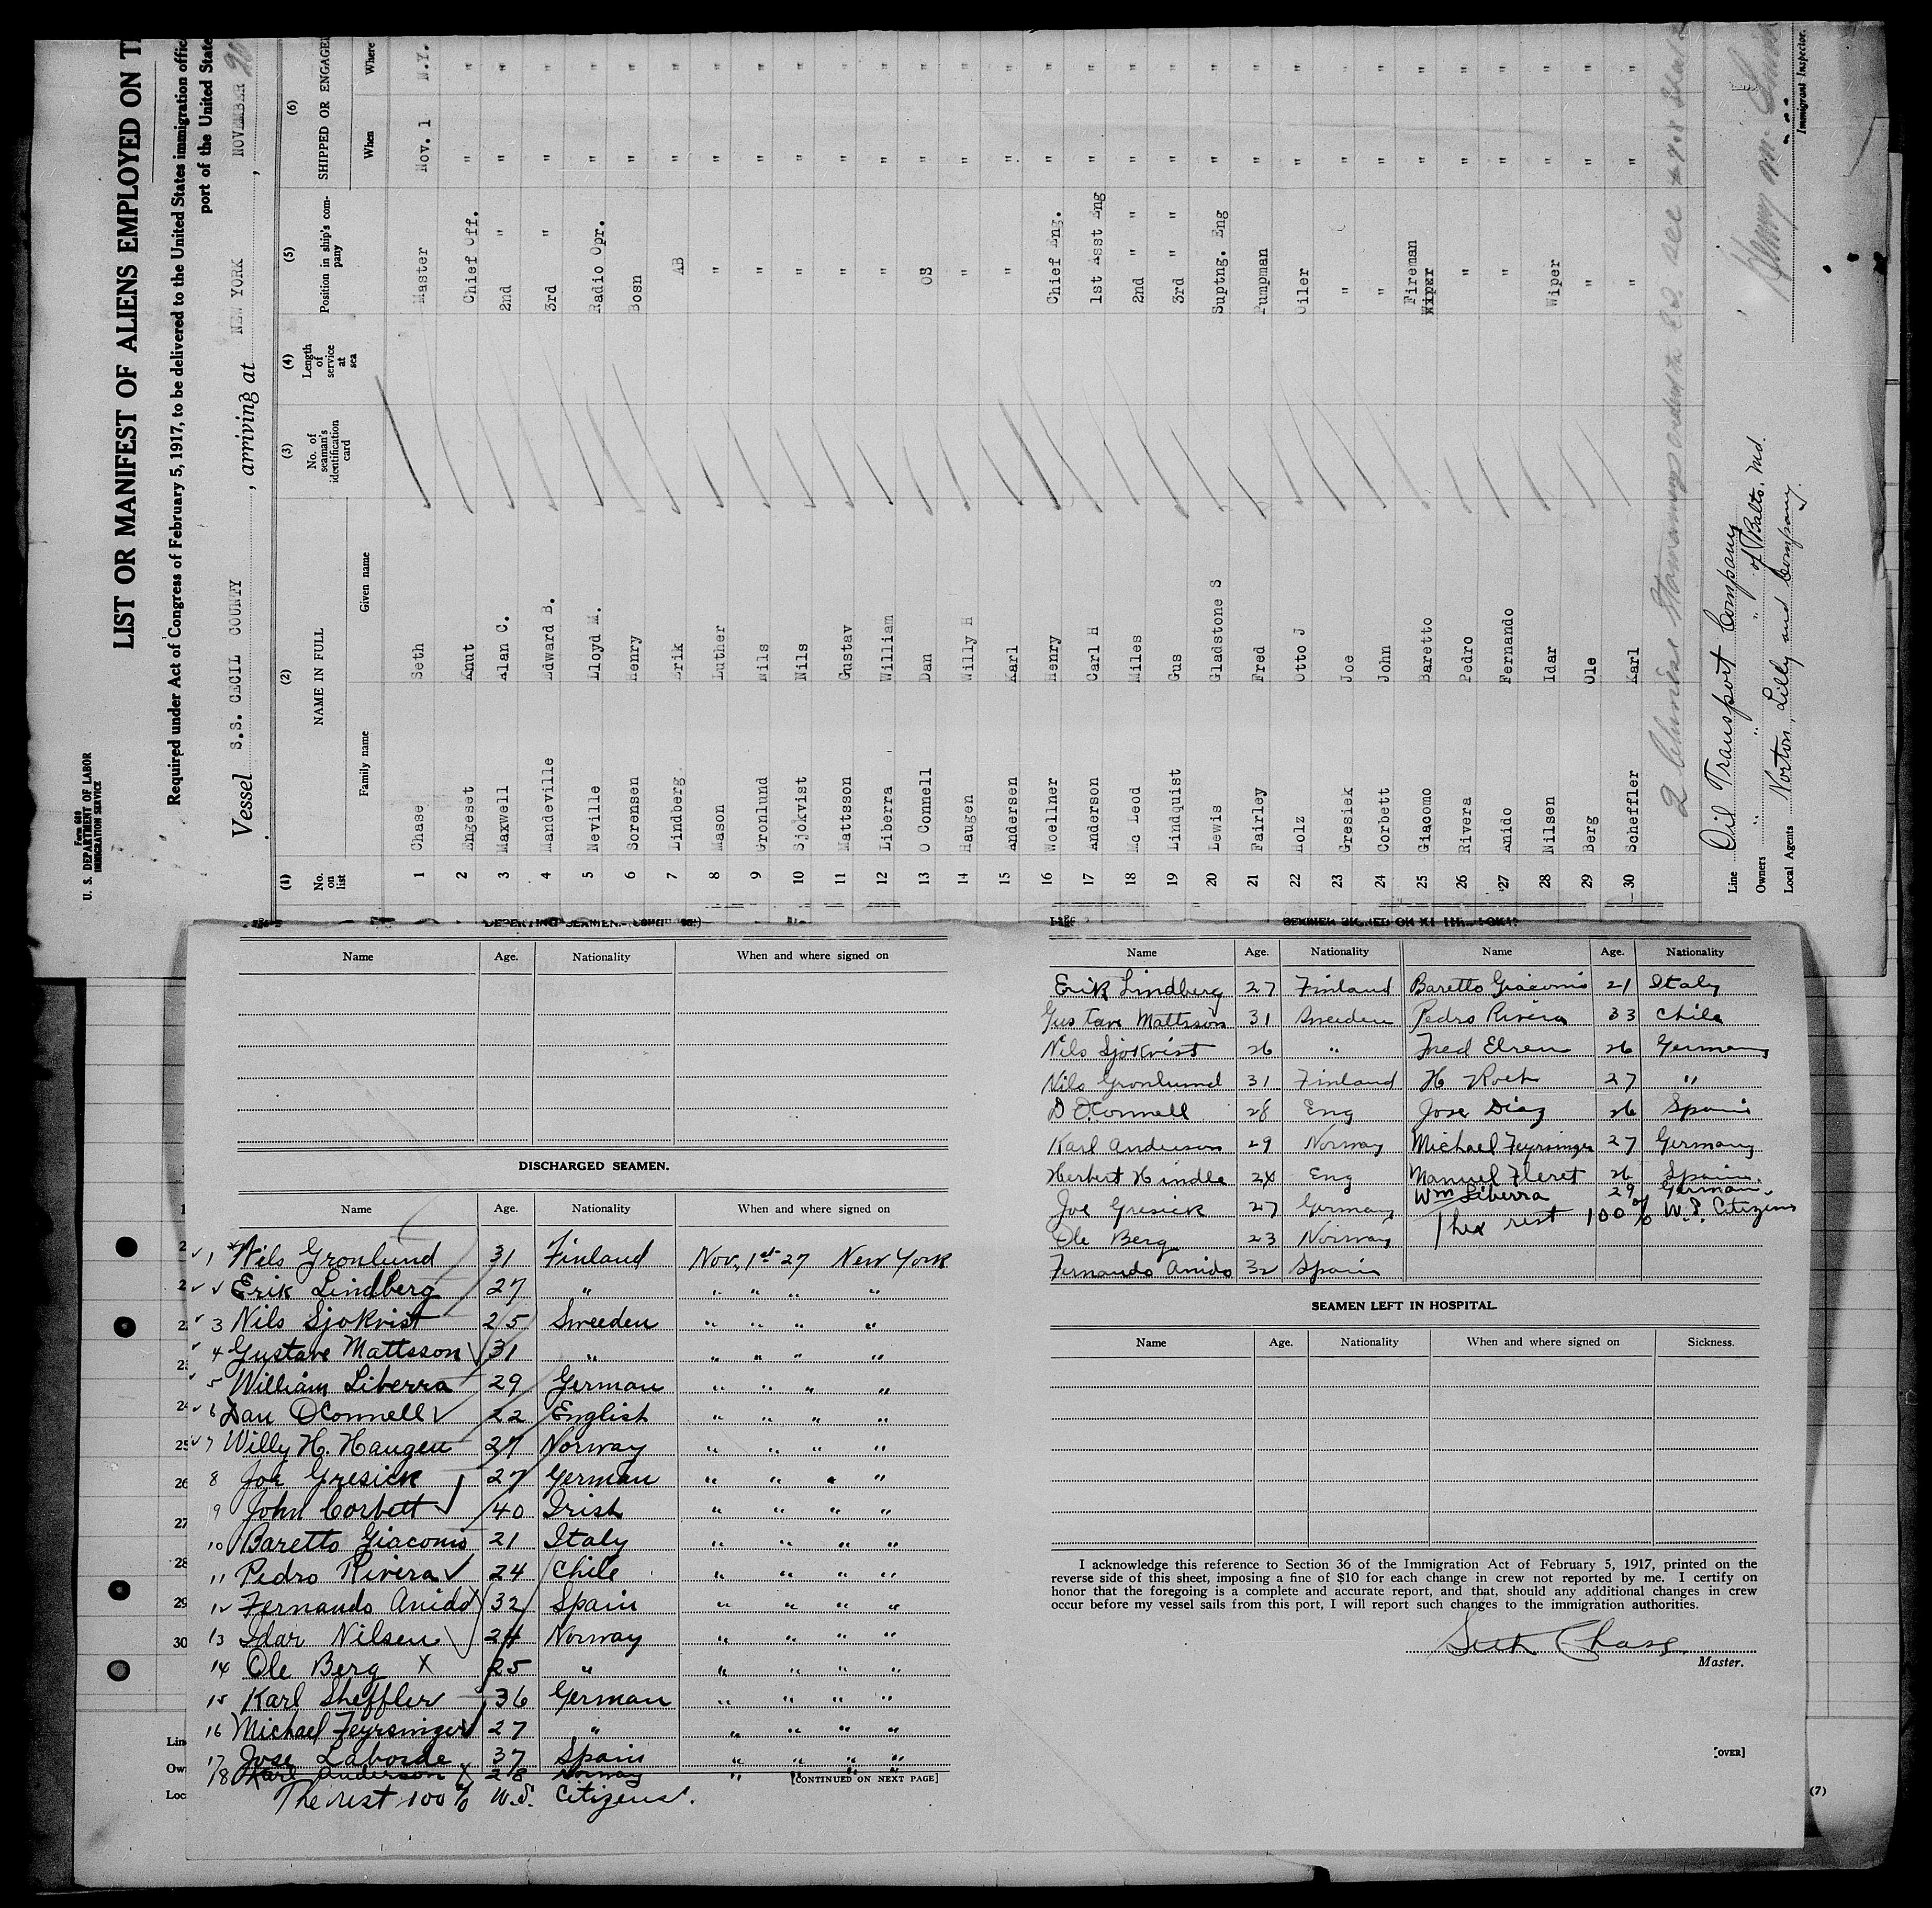 Form 680
U. S. DEPARTMENT OF LABOR
IMMIGRATION SERVICE
LIST OR MANIFEST OF ALIENS EMPLOYED ON T
Required under Act of Congress of February 5, 1917, to be delivered to the United States immigration offic
port of the United State
Vessel S.S. CECIL COUNTY, arriving at NEW YORK, NOVEMBER 20
(1) (2) (3) (4) (5) (6)
No. on list NAME IN FULL No. of seaman's identification card Length of service at sea Position in ship's company SHIPPED OR ENGAGED
Family name Given name When Where
1 Chase Seth Master Nov. 1 N.Y.
2 Engeset Knut Chief Off. " "
3 Maxwell Alan C. 2nd " " "
4 Mandeville Edward B. 3rd " " "
5 Neville Lloyd M. Radio Opr. " "
6 Sorensen Henry Bosn " "
7 Lindberg Erik AB " "
8 Mason Luther " " "
9 Gronlund Nils " " "
10 Sjokvist Nils " " "
11 Mattsson Gustav " " "
12 Liberra William " " "
13 O Connell Dan OS " "
14 Haugen Willy H " " "
15 Andersen Karl " " "
16 Woellner Henry Chief Eng. " "
17 Anderson Carl H 1st Asst Eng " "
18 Mc Leod Miles 2nd " " " "
19 Lindquist Gus 3rd " " " "
20 Lewis Gladstone S Suptng. Eng " "
21 Fairley Fred Pumpman " "
22 Holz Otto J Oiler " "
23 Gresiek Joe " " "
24 Corbett John " " "
25 Giacomo Baretto Fireman Wiper " "
26 Rivera Pedro " " "
27 Anido Fernando " " "
28 Nilsen Idar Wiper " "
29 Berg Ole " " "
30 Scheffler Karl " " "
2 Chinese
Line Oil Transport Company
Owners " " " of Balto. Md.
Local Agents Norton, Lilly and Company.
Henry M.
Immigrant Inspector.
Name Age. Nationality When and where signed on
DISCHARGED SEAMEN.
Name Age. Nationality When and where signed on
1 Nils Gronlund 31 Finland Nov. 1st 27 New York
Erik Lindberg 27 " " " " "
3 Nils Sjokvist 25 Sweeden " " " "
4 Gustave Mattsson 31 " " " " "
5 William Liberra 29 German " " " "
6 Dan OConnell 22 English " " " "
7 Willy H. Haugen 27 Norway " " " "
8 Joe Gresick 27 German " " " "
9 John Corbett 40 Irish " " " "
10 Baretto Giacomo 21 Italy " " " "
11 Pedro Rivera 24 Chile " " " "
12 Fernando Anido 32 Spain " " " "
13 Idar Nilsen 24 Norway " " " "
14 Ole Berg X 25 " " " " "
15 Karl Sheffler 36 German " " " "
16 Michael Feyrsinger 27 " " " " "
17 Jose Laborde 37 Spain " " " "
18 Karl Anderson X 28 Norway " " " "
[CONTINUED ON NEXT PAGE]
The rest 100% U.S. Citizens.
Name Age. Nationality Name Age. Nationality
Erik Lindberg 27 Finland Baretto Giacomo 21 Italy
Gustave Mattsson 31 Sweeden Pedro Rivera 33 Chile
Nils Sjokvist 26 " Fred Elren 26 Germany
Nils Gronlund 31 Finland H Roch 27 "
D OConnell 28 Eng Jose Diaz 26 Spain
Karl Anderson 29 Norway Michael Feyrsinger 27 Germany
Herbert Hindle 24 Eng Manuel Fleret 26 Spain
Wm Liberra 29 German
Joe Gresick 27 Germany The rest 100% U.S. Citizens
Ole Berg 23 Norway
Fernando Anido 32 Spain
SEAMEN LEFT IN HOSPITAL.
Name Age. Nationality When and where signed on Sickness.
I acknowledge this reference to Section 36 of the Immigration Act of February 5, 1917, printed on the
reverse side of this sheet, imposing a fine of $10 for each change in crew not reported by me. I certify on
honor that the foregoing is a complete and accurate report, and that, should any additional changes in crew
occur before my vessel sails from this port, I will report such changes to the immigration authorities.
Seth Chase
Master.
[OVER]
(7)
26
27
28
29
30
Lin
Ow
Loc